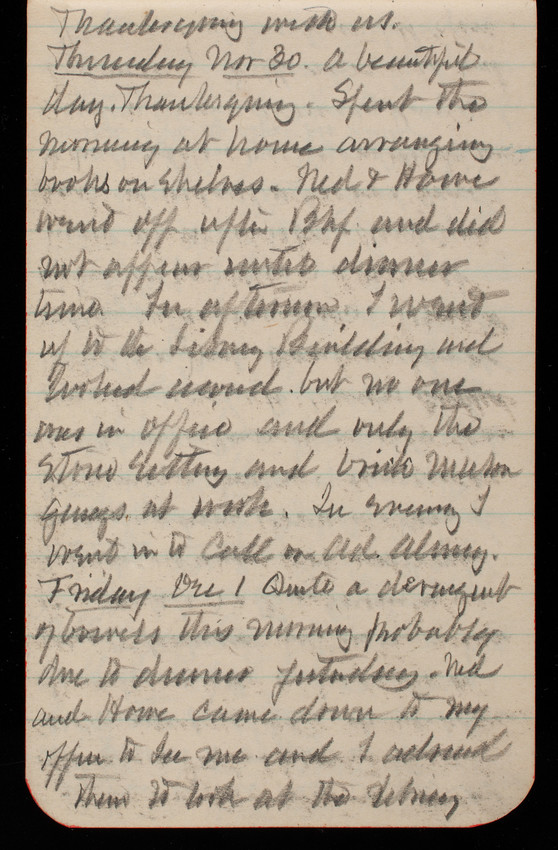 Thanksgiving with us.
Thursday Nov 30. A beautiful
day. Thanksgiving. Spent the
morning at home arranging
books on shelves. Ned & Howe
went off after Bkf and did
not appear until dinner
time. In afternoon I went
up to the Library Building and
looked around but no one
was in office and only the
Stone Setting and brick mason
gangs at work. In evening I
went in to call on Ad. Almy.
Friday Dec 1 Quite a derangement
of bowels this morning probably
due to dinner yesterday. Ned
and Howe came down to my
office to see me and I advised
them to look at the Library